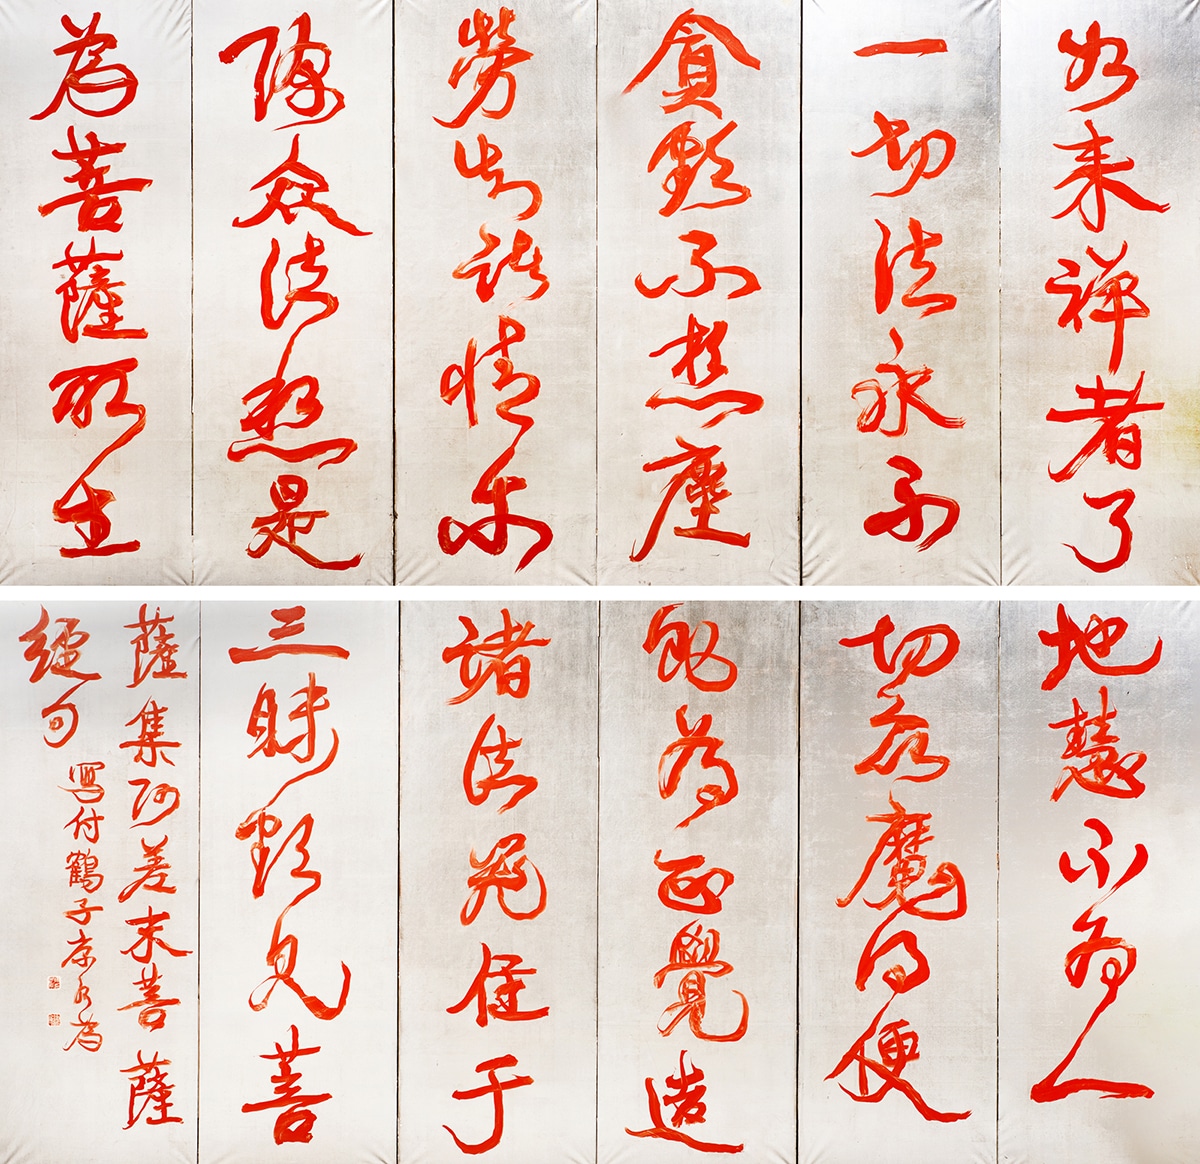 如来禅者了
一切法永不
貪願不想塵
勞出諸情亦
除眾法想是
為菩薩所生
地慧不為一
切众魔得便
能為正覺造
諸法住于
三昧願見菩
薩集阿差末菩薩
經句
寫付鶴子 康有為